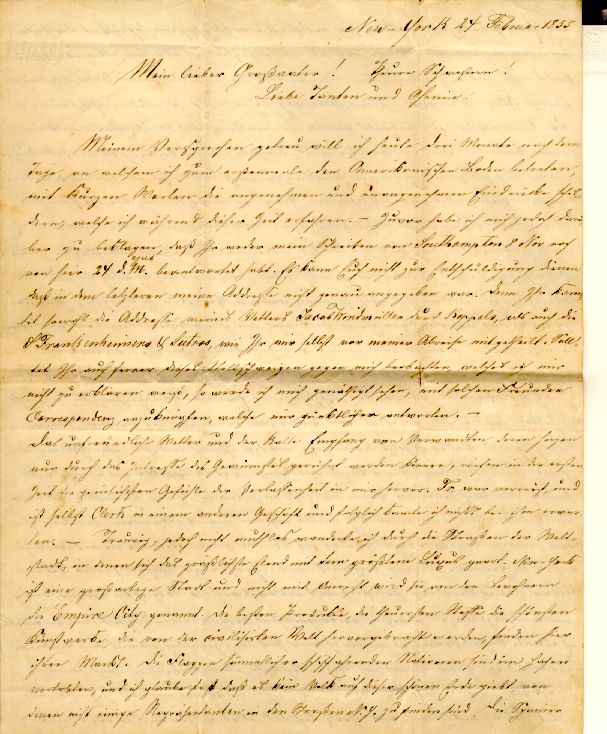 New-York 24 Februar 1855
Mein lieber Großvater! Theure Schwestern!
Liebe Tanten und Oheime!
Meinem Versprechen getreu will ich heute drei Monate nach dem
Tage, an welchem ich zum erstenmale den Amerikanischen Boden betreten,
mit kurzen Worten die angenehmen und unangenehmen Eindrücke schil
dern, welche ich während dieser Zeit erfahren. — Zuvor habe ich mich jedoch darü
ber zu beklagen, daß Ihr weder mein Schreiben von Southampton 8 Nov noch
von hier 24 d. M. beantwortet habt. Es kann Euch nicht zur Entschuldigung dienen
daß in dem letzteren meine Addresse nicht genau angegeben war. denn Ihr kann
tet sowohl die Addresse meines Vetters Jacob durch Appels, als auch die
& Sutros, wie Ihr mir selbst vor meiner Abreise mitgetheilt. Soll
tet Ihr auch ferner dieses Stillschweigen gegen mich beobachten, welches ich mir
nicht zu erklären weiß, so werde ich mich genöthigt sehen, mit solchen Freunden
Correspondenz anzuknüpfen, welche mir pünktlicher antworten. —
Das unfreundliche Wetter und der kalte Empfang von Verwandten, deren Herzen
nur durch das Interesse des Gewinnstes gerührt werden können, riefen in der ersten
Zeit die peinlichsten Gefühle der Verlassenheit in mir hervor. war verreist und
ist selbst Clerk in einem anderen Geschäft und folglich konnte ich nichts bei ihm erwar
ten. — Traurig, jedoch nicht muthlos wanderte ich durch die Straßen der Welt-
stadt, in denen sich das gräßlichste Elend mit dem größten Luxus paart. New-York
ist eine großartige Stadt und nicht mit Unrecht wird sie von den Bewohnern
die Empire City genannt. Die besten Produkte, die theuersten Stoffe die schönsten
Kunstwerke, die von der civilisirten Welt hervorgebracht werden, finden hier
ihren Markt. Die Flaggen sämmtlicher schifffahrenden Nationen sind im Hafen
vertreten, und ich glaube fest daß es kein Volk auf dieser schönen Erde giebt, von
denen nicht einige Repräsentanten in den Straßen N.Y. zu finden sind. Die Spanier